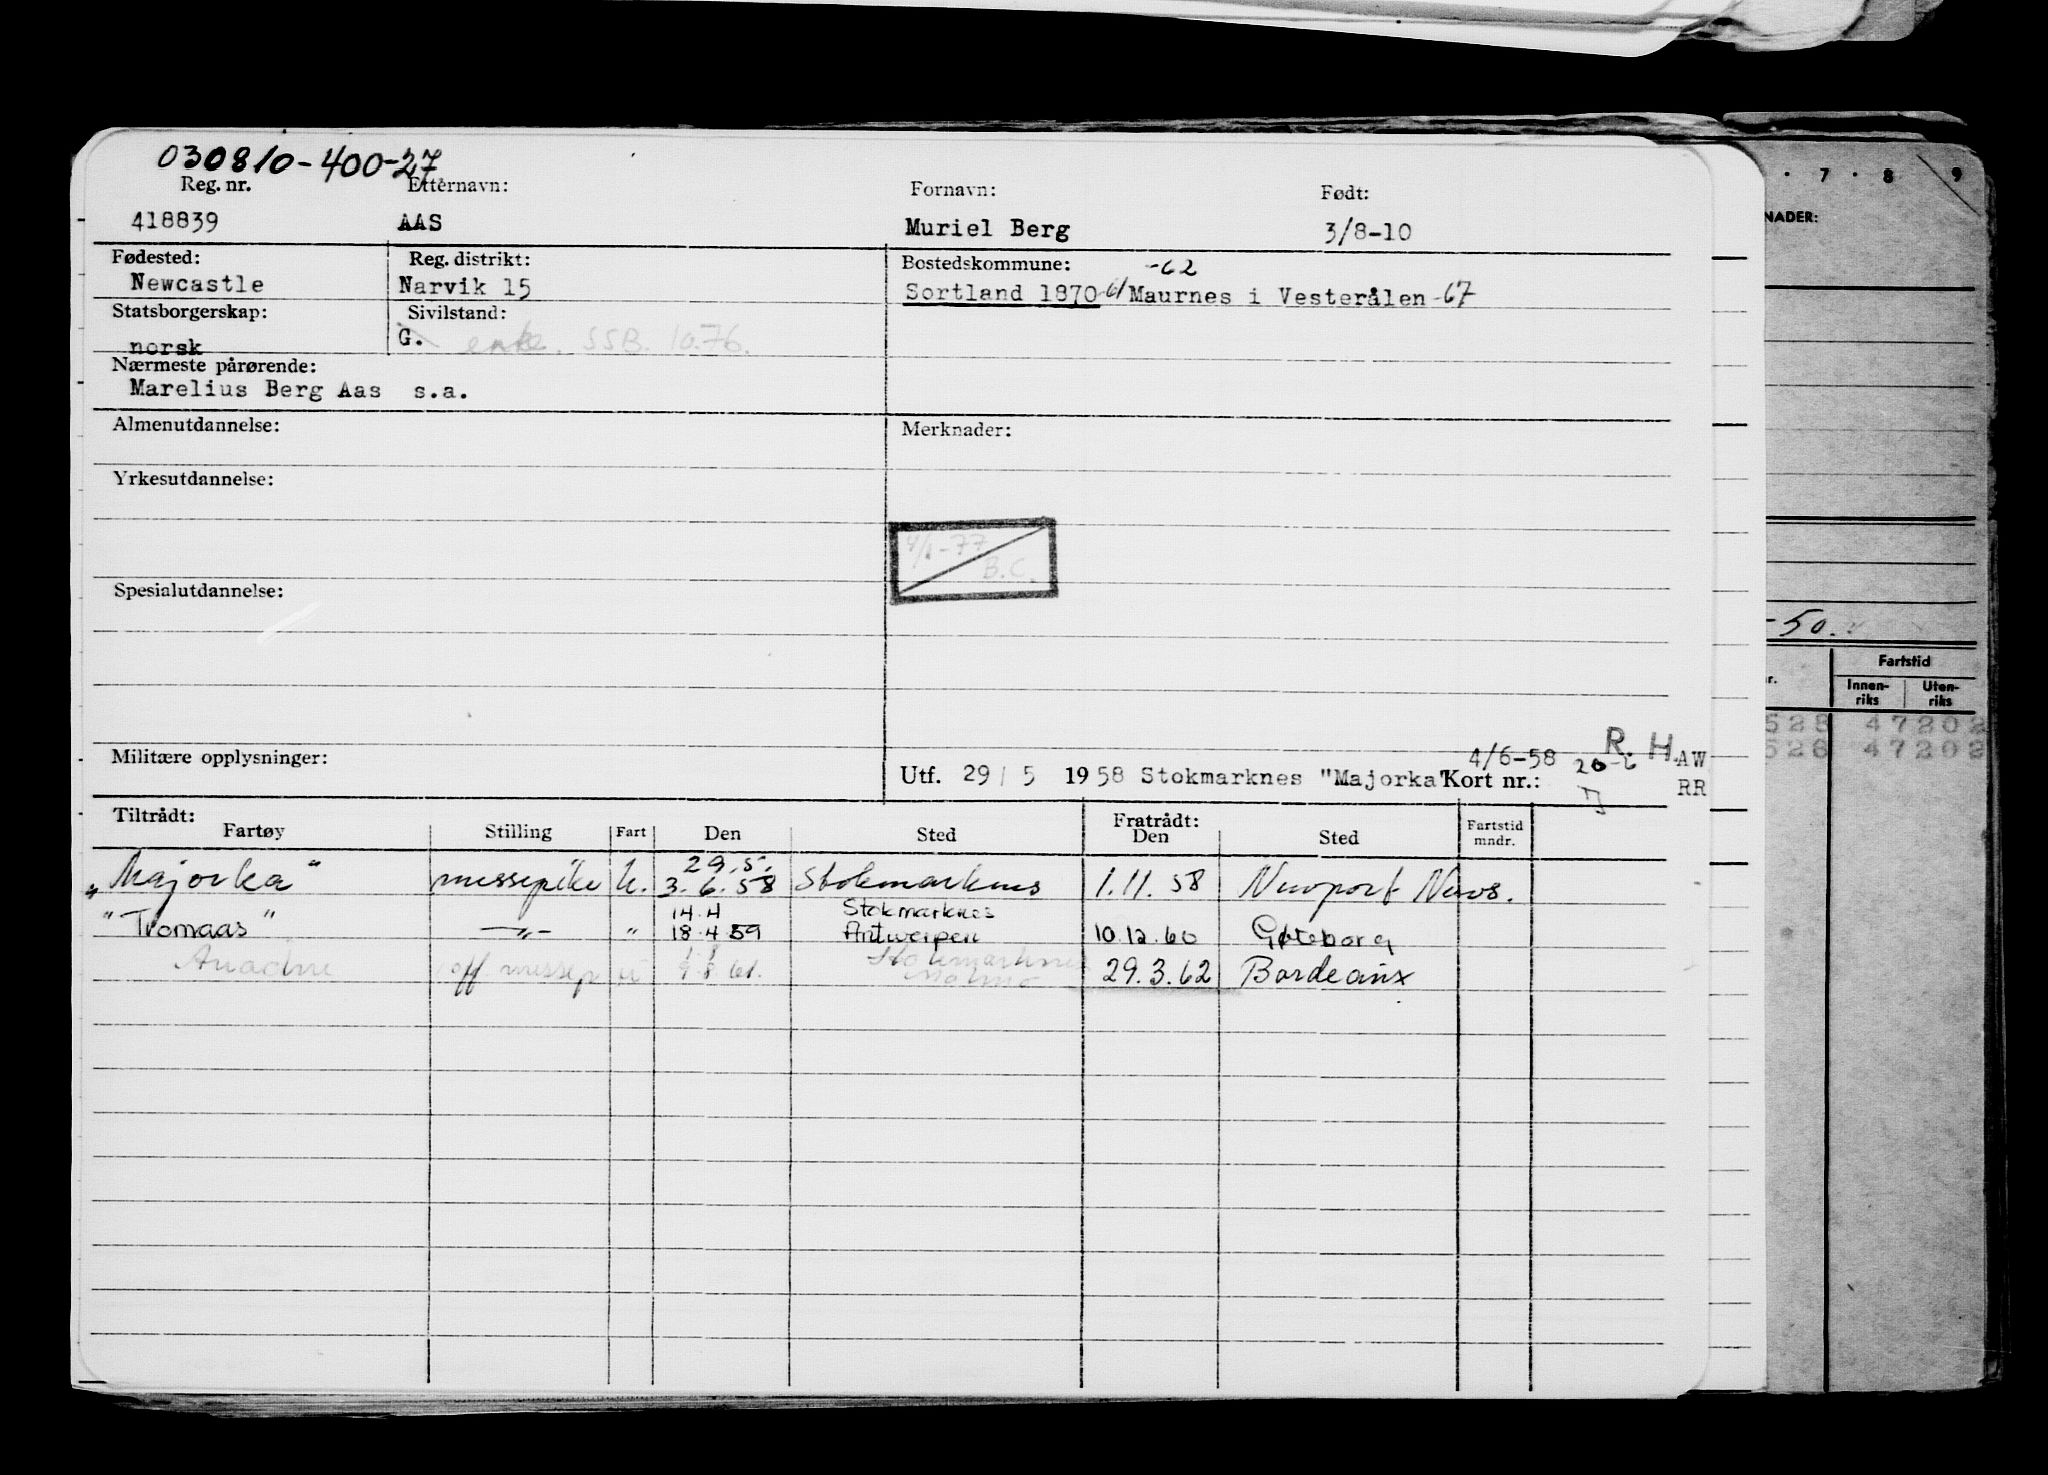 030810-400-27
Reg. nr. Etternavn: Fornavn: Født:
418839 AAS Muriel Berg 3/8-10
Fødested: Reg. distrikt: Bostedskommune: -62
Newcastle Narvik 15 Sortland 1870 -61 Maurnes i Vesterålen -67
Statsborgerskap: Sivilstand:
norsk G. enke. SSB. 10.76.
Nærmeste pårørende:
Marelius Berg Aas s.a.
Almenutdannelse: Merknader:
Yrkesutdannelse:
4/1-77
B.C.
Spesialutdannelse:
Militære opplysninger:
4/6-58 R. H. AW
Utf. 29/5 1958 Stokmarknes "Majorka" Kort nr.: RR
Tiltrådt: Fratrådt:
Fartøy Stilling Fart Den Sted Den Sted Fartstid mndr.
29.5.
"Majorka" messepike U. 3.6.58 Stokmarknes 1.11.58 Newport News.
14.4 Stokmarknes
"Tromaas" —"— " 18.4 59 Antwerpen 10.12.60 Gøteborg
1.8 Stokmarknes
Ariadne off messep U 9.8.61. Malmö 29.3.62 Bordeaux
7 8 9
NADER:
-50.
Fartstid
r. Innen-riks Uten-riks
528 47202
528 47202